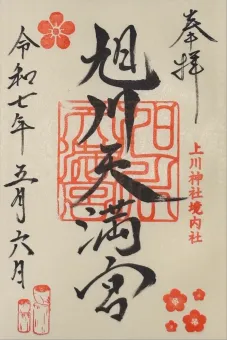 奉拝
上川神社境内社
旭川天満宮
令和七年五月六月